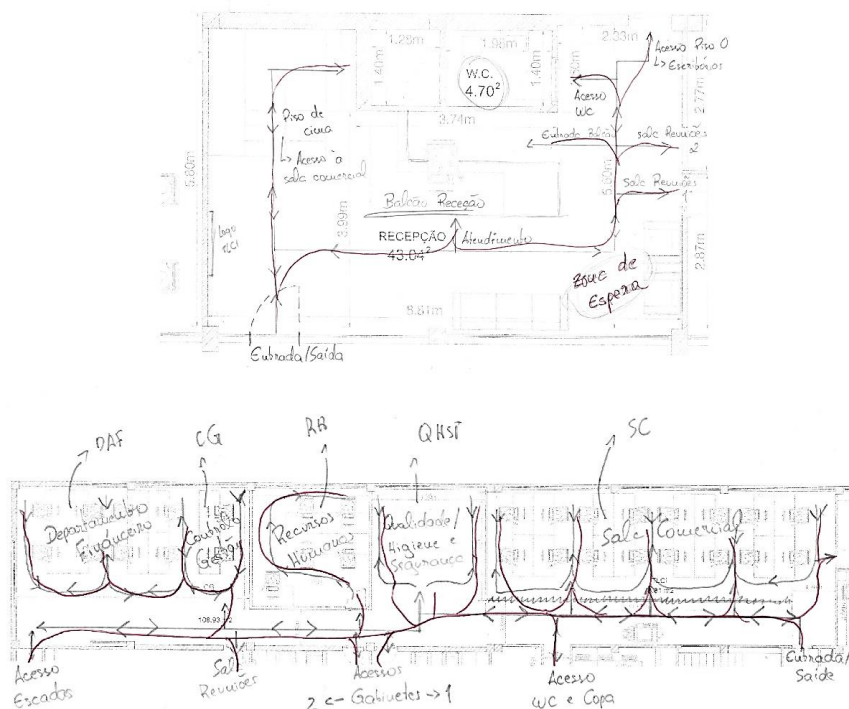 1.28m
1.98m
2.33m
Acesso Piso 0
↳ Escritórios
1.40m
W.C.
4.70²
1.40m
Acesso
WC
2.77m
3.74m
Piso de
cima
↳ Acesso à
sala comercial
Entrada Balcão
Sala Reuniões
2
5.80m
Sala Reuniões
Balcão Receção
3.99m
logo
TLCI
RECEPÇÃO
43.04²
Atendimento
Zona de
Espera
2.87m
8.81m
Entrada/Saída
DAF
CG
RH
QHST
SC
Departamento
Financeiro
Controlo
Gestão
Recursos
Humanos
Qualidade/
Higiene e
Segurança
Sala Comercial
TLCI
108.93
Acesso
Escadas
Sala
Reuniões
Acessos
2 <- Gabinetes -> 1
Acesso
WC e Copa
Entrada/
Saída